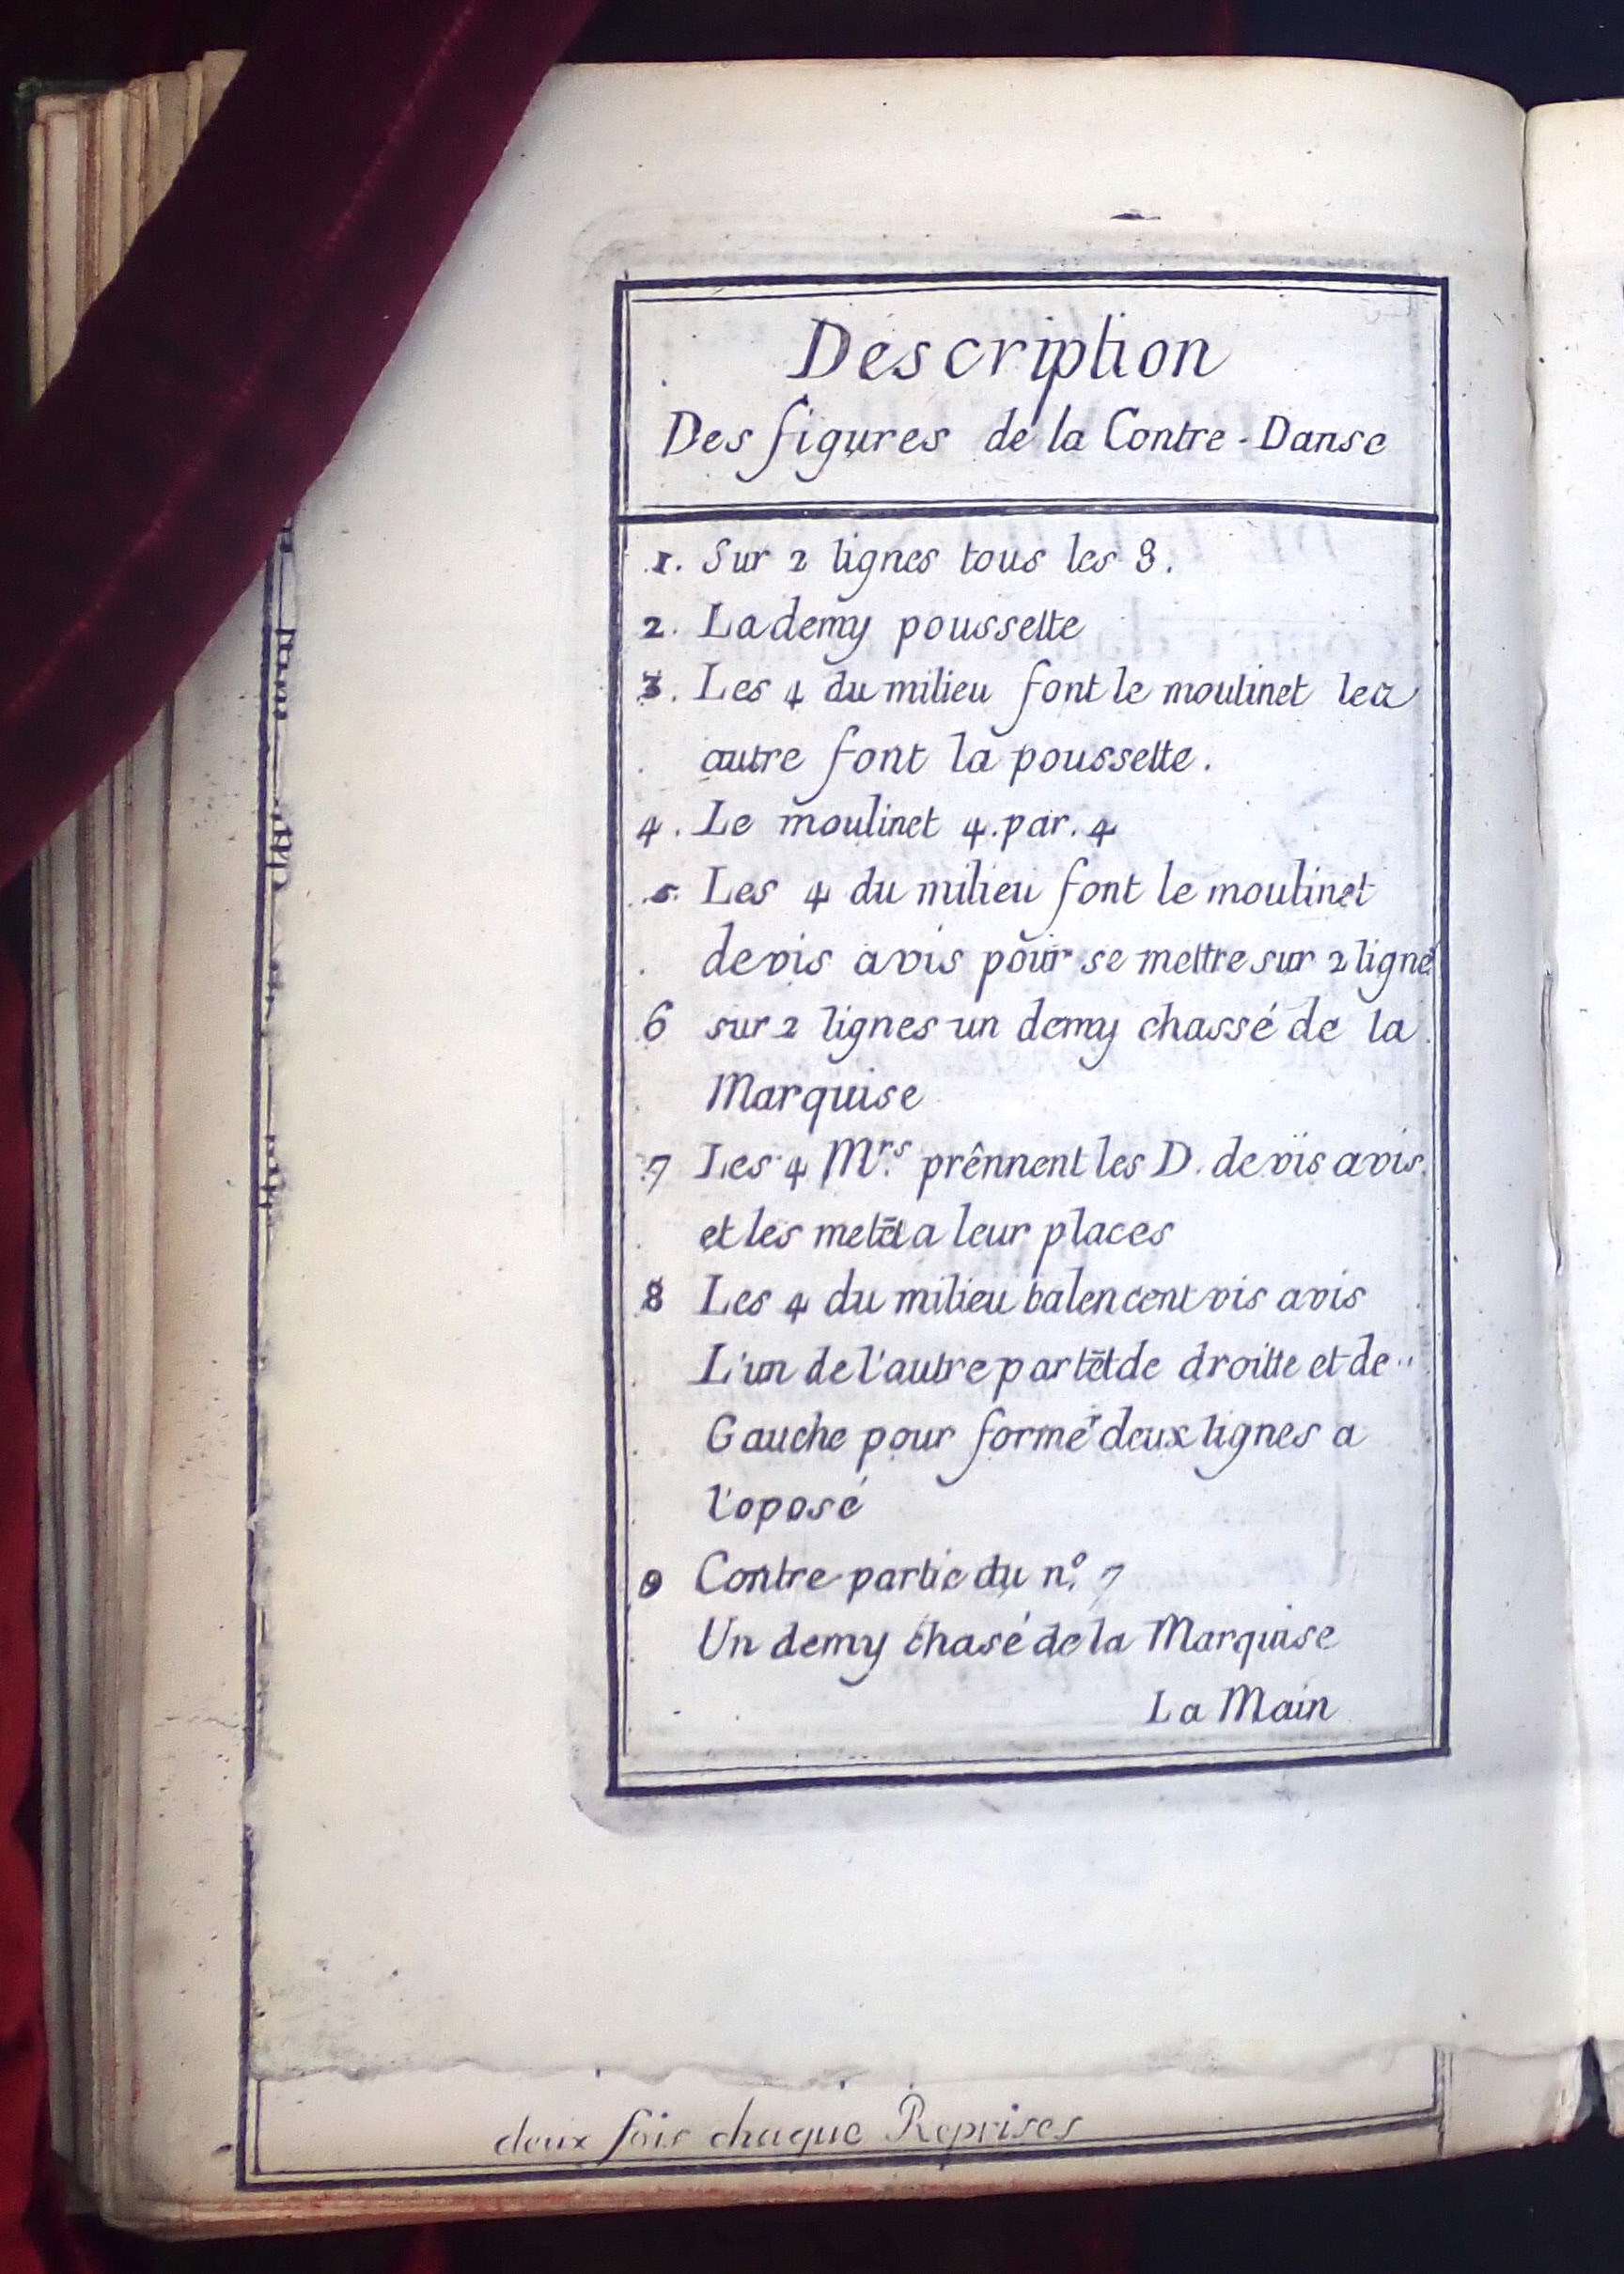 Description
Des figures de la Contre-Danse
1. Sur 2 lignes tous les 8.
2. La demy poussette
3. Les 4 du milieu font le moulinet les
autre font la poussette.
4. Le moulinet 4. par. 4
5. Les 4 du milieu font le moulinet
de vis avis pour se mettre sur 2 ligne
6 sur 2 lignes un demy chassé de la
Marquise
7 Les 4 Mrs. prênnent les D. de vis avis.
et les metēt a leur places
8 Les 4 du milieu balencent vis avis
L'un de l'autre partēt de droitte et de
Gauche pour former deux lignes a
l'oposé
9 Contre partie du no. 7
Un demy chasé de la Marquise
La Main
deux fois chaque Reprises